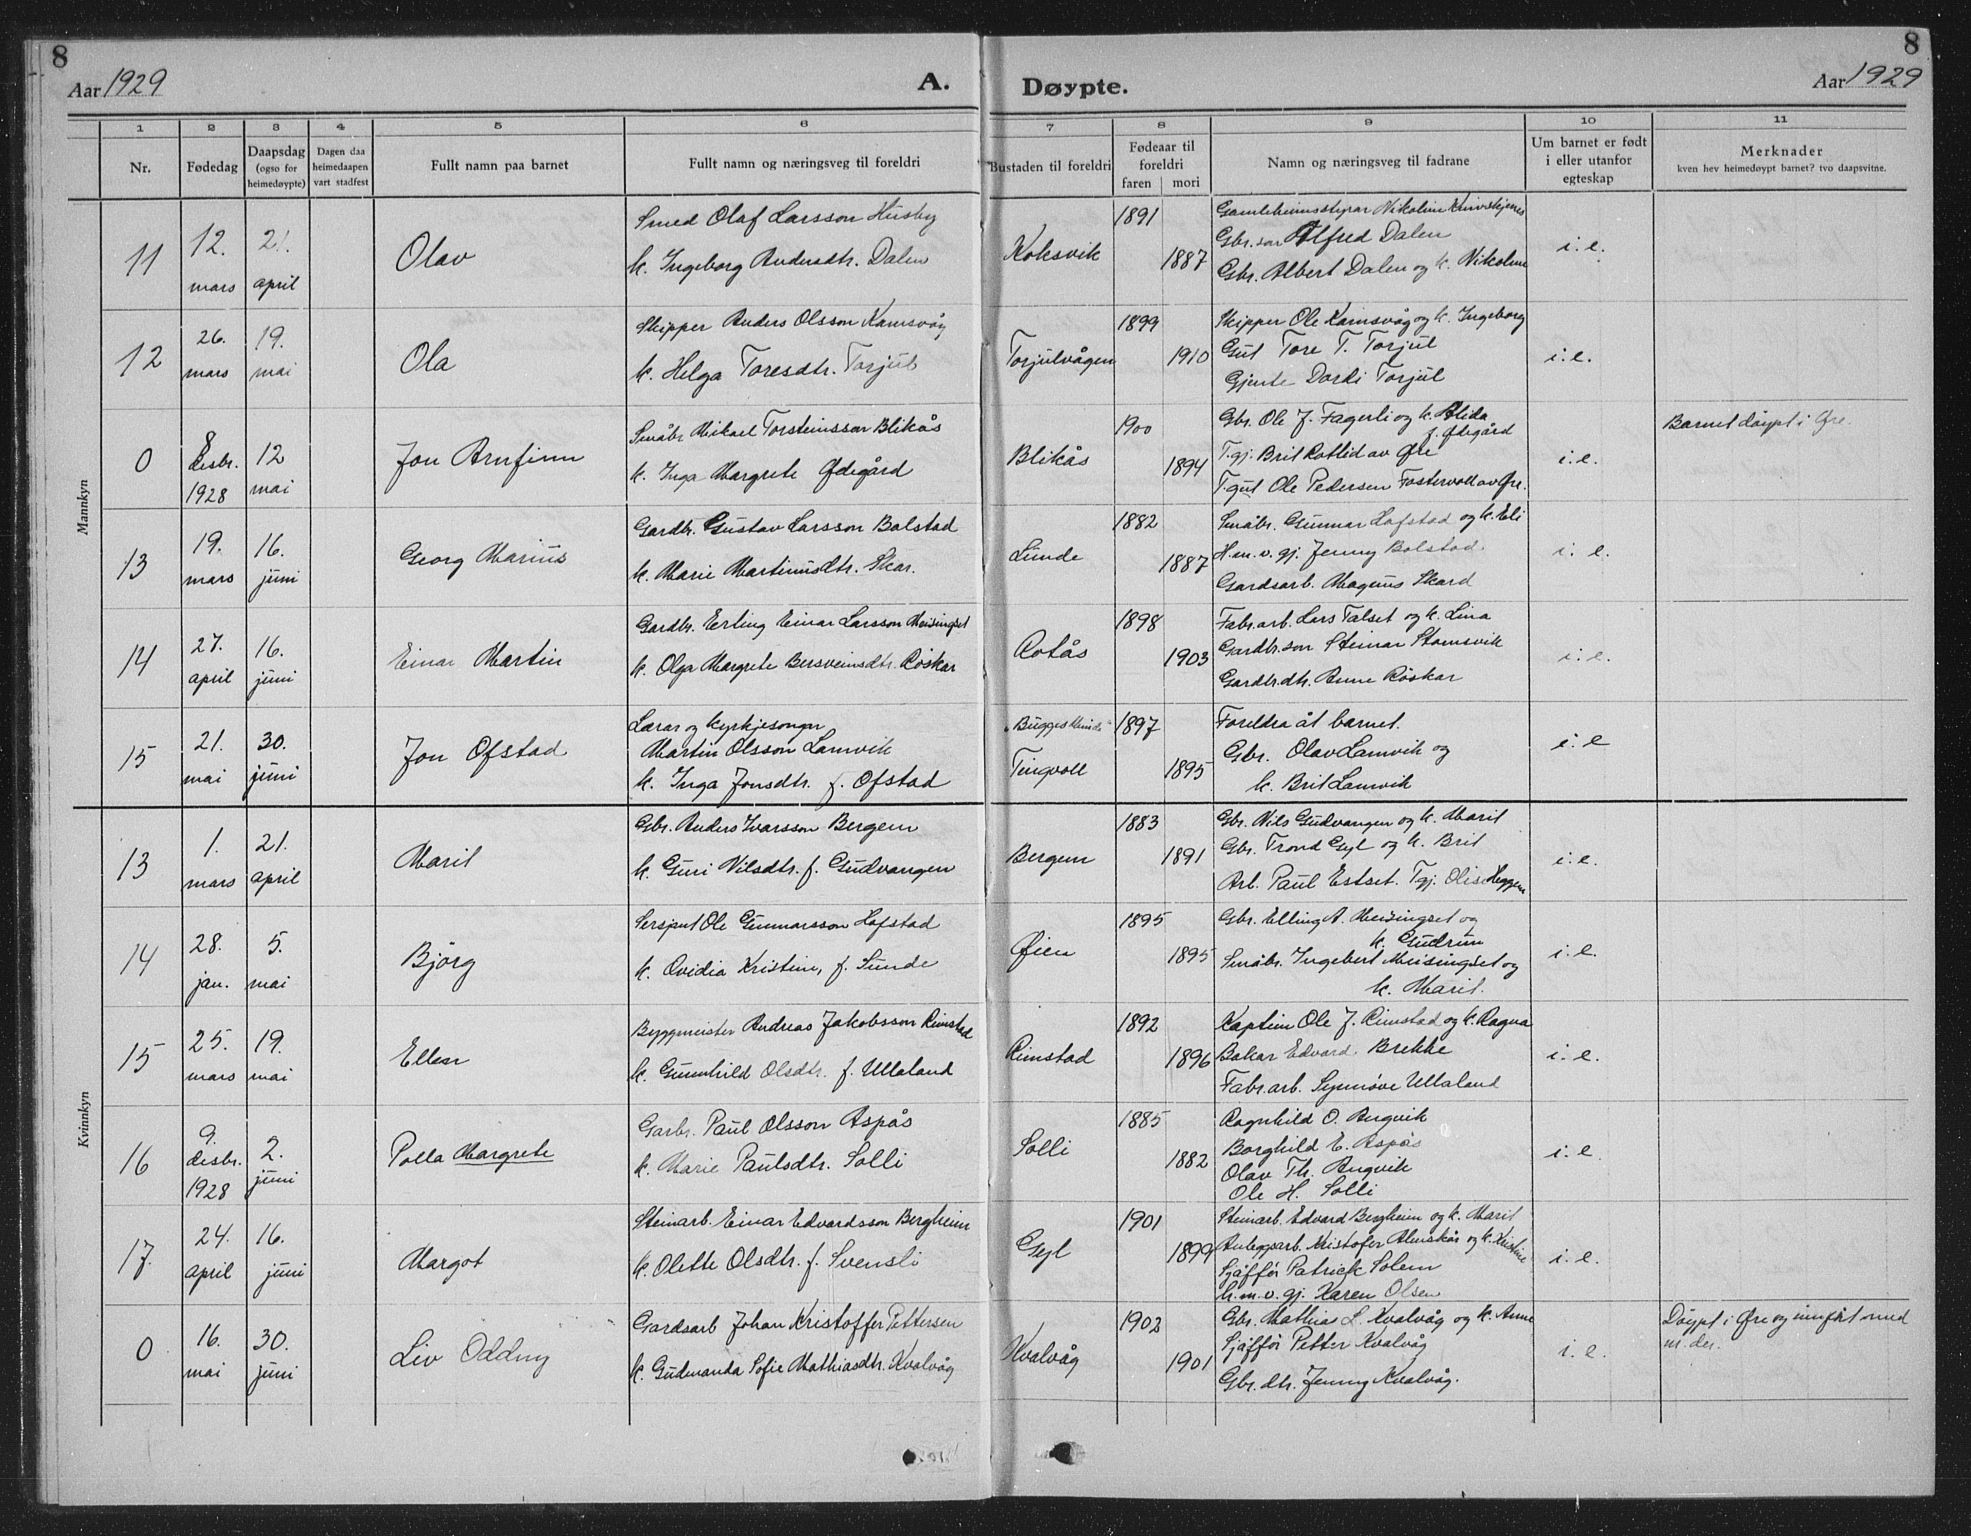 8
Aar 1929
A.
Døypte.
8
Aar 1929
1 2 3 4 5 6 7 8 9 10 11
Nr.
Fødedag
Daapsdag
(ogso for
heimedøypte)
Dagen daa
heimedaapen
vart stadfest
Fullt namn paa barnet
Fullt namn og næringsveg til foreldri
Bustaden til foreldri
Fødeaar til
foreldri
faren mori
Namn og næringsveg til fadrane
Um barnet er født
i eller utanfor
egteskap
Merknader
kven hev heimedøypt barnet? tvo daapsvitne.
Mannkyn
11
12.
mars
21.
april
Olav
Smed Olaf Larsson Husby
k. Ingeborg Andersdtr. Dalen
Koksvik
1891
1887
Gamleheimsstyrar Nikoline
Gbr. son Alfred Dalen
Gbr. Albert Dalen og k. Nikoline
i. e.
12
26.
mars
19.
mai
Ola
Skipper Anders Olsson Kamsvåg
k. Helga Toresdtr. Torjul
Torjulvågen
1899
1910
Skipper Ole Kamsvåg og k. Ingeborg
Gut Tore T. Torjul
Gjente Dordi Torjul
i. e.
0
8
desbr.
1928
12
mai
Jon Arnfinn
Småbr. Mikael Torsteinsson Blikås
k. Inga Margrete Ødegård
Blikås
1900
1894
Gbr. Ole J. Fagerli og k. Alida
f. Ødegård
T.gj. Brit Rottlid av Øre
T.gut Ole Pedersen Fostervoll av Øre.
i. e.
Barnet døypt i Øre.
13
19.
mars
16.
juni
Georg Marius
Gardbr. Gustav Larsson Bolstad
k. Marie Martinusdtr. Skar.
Lunde
1882
1887
Småbr. Gunnar Hofstad og k. Eli
H.m.v.gj. Jenny Bolstad.
Gardsarb. Magnus Skard
i. e.
14
27.
april
16.
juni
Einar Martin
Gardbr. Erling Einar Larsson Meisingset
k. Olga Margrete Bersveinsdtr. Røskar
Rotås
1898
1903
Fabr.arb. Lars Talset og k. Lina
Gardbr.son Steinar Stomsvik
Gardbr.dtr. Anne Røskar
i. e.
15
21.
mai
30.
juni
Jon Ofstad
Lærar og kyrkjesongar
Martin Olsson Lamvik
k. Inga Jonsdtr. f. Ofstad
"Bugges Minde"
Tingvoll
1897
1895
Foreldra åt barnet.
Gbr. Olav Lamvik og
k. Brit Lamvik
i. e
Kvinnkyn
13
1.
mars
21.
april
Marit
Gbr. Anders Ivarsson Bergem
k. Guri Nilsdtr. f. Gudvangen
Bergem
1883
1891
Gbr. Nils Gudvangen og k. Marit
Gbr. Trond Gyl og k. Brit
Arb. Paul Estset. T.gj. Olise Heggem
i. e.
14
28.
jan.
5.
mai
Bjørg
Sersjant Ole Gunnarsson Hofstad
k. Ovidia Kristine, f. Sunde
Øien
1895
1895
Gbr. Elling A. Meisingset og
k. Gudrun
Småbr. Ingebert Meisingset og
k. Marit.
i. e.
15
25.
mars
19.
mai
Ellen
Byggmeister Andreas Jakobsson Rimstad
k. Gunnhild Olsdtr. f. Ullaland
Rimstad
1892
1896
Kaptein Ole J. Rimstad og k. Ragna
Bakar Edvard Brekke
Fabr.arb. Synnøve Ullaland
i. e.
16
9.
desbr.
1928
2.
juni
Polla Margrete
Garbr. Paul Olsson Aspås
k. Marie Paulsdtr. Solli
Solli
1885
1882
Ragnhild O. Angvik
Borghild E. Aspås
Olav Th. Angvik
Ole H. Solli
i. e.
17.
24.
april
16.
juni
Margot
Steinarb. Einar Edvardsson Bergheim
k. Olette Olsdtr. f. Svensli
Gyl
1901
1899
Steinarb. Edvard Bergheim og k. Marit
Anleggsarb. Kristofer Almskår og k. Kristine
Sjåffør Patrick Solem
h.m.v.gj. Karen Olsen
i. e.
0
16.
mai
30.
juni
Liv Oddny
Gardsarb Johan Kristoffer Pettersen
k. Gudmanda Sofie Mathiasdtr. Kvalvåg
Kvalvåg
1902
1901
Gbr. Mathias L. Kvalvåg og k. Anne
Sjåffør Petter Kvalvåg
Gbr. dtr. Jenny Kvalvåg.
i. e.
Døypt i Øre og innført med
nr. der.